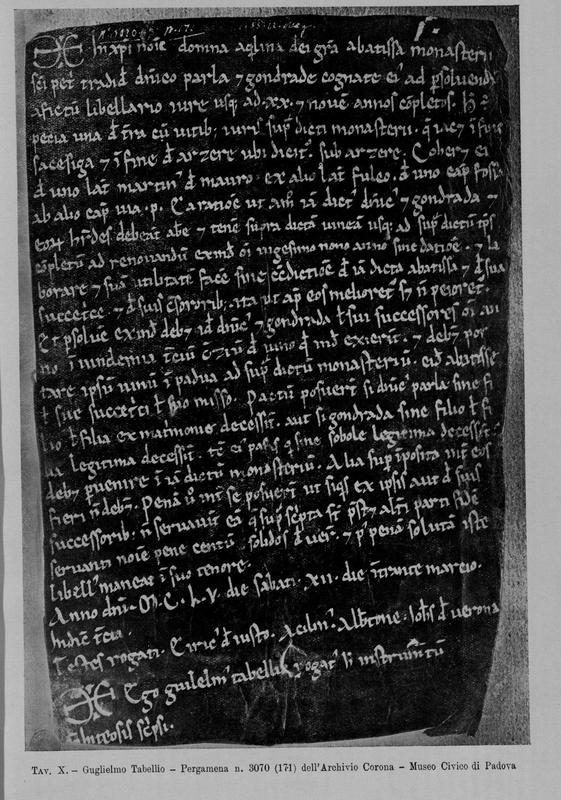 In xp̄i noīe domna aq̄lina dei gr̄a abatissa monasterii
sc̄i pet' tradid' dn̄ico parla ⁊ gondrade cognate ei' ad p̱soluendū
afictū libellario iure usq; ad .xx. ⁊ nouē annos cōpletos.
pecia una d' t̄ra cū uitib; iuris sup̄ dicti monasterii. q̄ iacꝫ ī
sacesiga ⁊ ī fine d' arzere ubi dicit' sub arzere. Coherꝫ ei
d' uno lat' martin' d' mauro. ex alio lat' fuleo. d' uno cap'
ab alio cap' uia. p. Ea ratiōe ut am̄ iā dict' dn̄ic' ⁊ gondrada
eorꝫ hr̄des debeāt ab̄e ⁊ tene' supra dictā uineā usq; ad sup̄ dictū tp̄s
cōpletū ad renouandū exinde oī uigesimo nono anno sine datiōe. ⁊ la
borare ⁊ suā utilitatē face' sine c̄dictiōe d' iā dicta abatissa ⁊ d' sua
succetce. ⁊ d' suis c̄sororib; ita ut ap' eos melioret' ⁊ n̄ peioret'.
Et p̱solue' exind' debꝫ id' dn̄ic' ⁊ gondrada ł sui successores oī
no ī uindemia t̄ciū uinū d' uino q̄ ind' exierit. ⁊ debꝫ por
tare ipsū uinū ī padua ad sup̄ dictū monasteriū. eid' abatisse
ł sue succetrici ł suo misso. Pactū posuer̄t si dn̄ic' parla sine fi
lio ł filia ex matrimonio decessit. aut si gondrada sine filio ł fi
lia legitima decessit. sine sobole legitima decessit
debꝫ p̱uenire ī iā dictū monasteriū. Alia sup̄ īposita int' eos
fieri n̄ debꝫ. Penā u° int' se posuer̄t ut siq̄s ex ipsis aut d' suis
successorib; n̄ seruauit ea q̄ sup̄ sc̄pta st̄ p̄stꝫ alt̄i parti fidē
seruanti noīe pene centū solidos d' uen̄. ⁊ p' penā solutā iste
libell' maneat ī suo tenore.
Anno dn̄i. M. C. L. V. die sabati. XII. die īt̄rante marcio.
Indic̄ t̄cia.
Testes rogati. Ciric' d' iusto. Acilin'. Alb̄tone. Ioh̄s d' uerona
Ego guilelm' tabellio rogat' h' instrum̄tū
sc̄psi.
TAV. X. – Guglielmo Tabellio – Pergamena n. 3070 (171) dell'Archivio Corona – Museo Civico di Padova